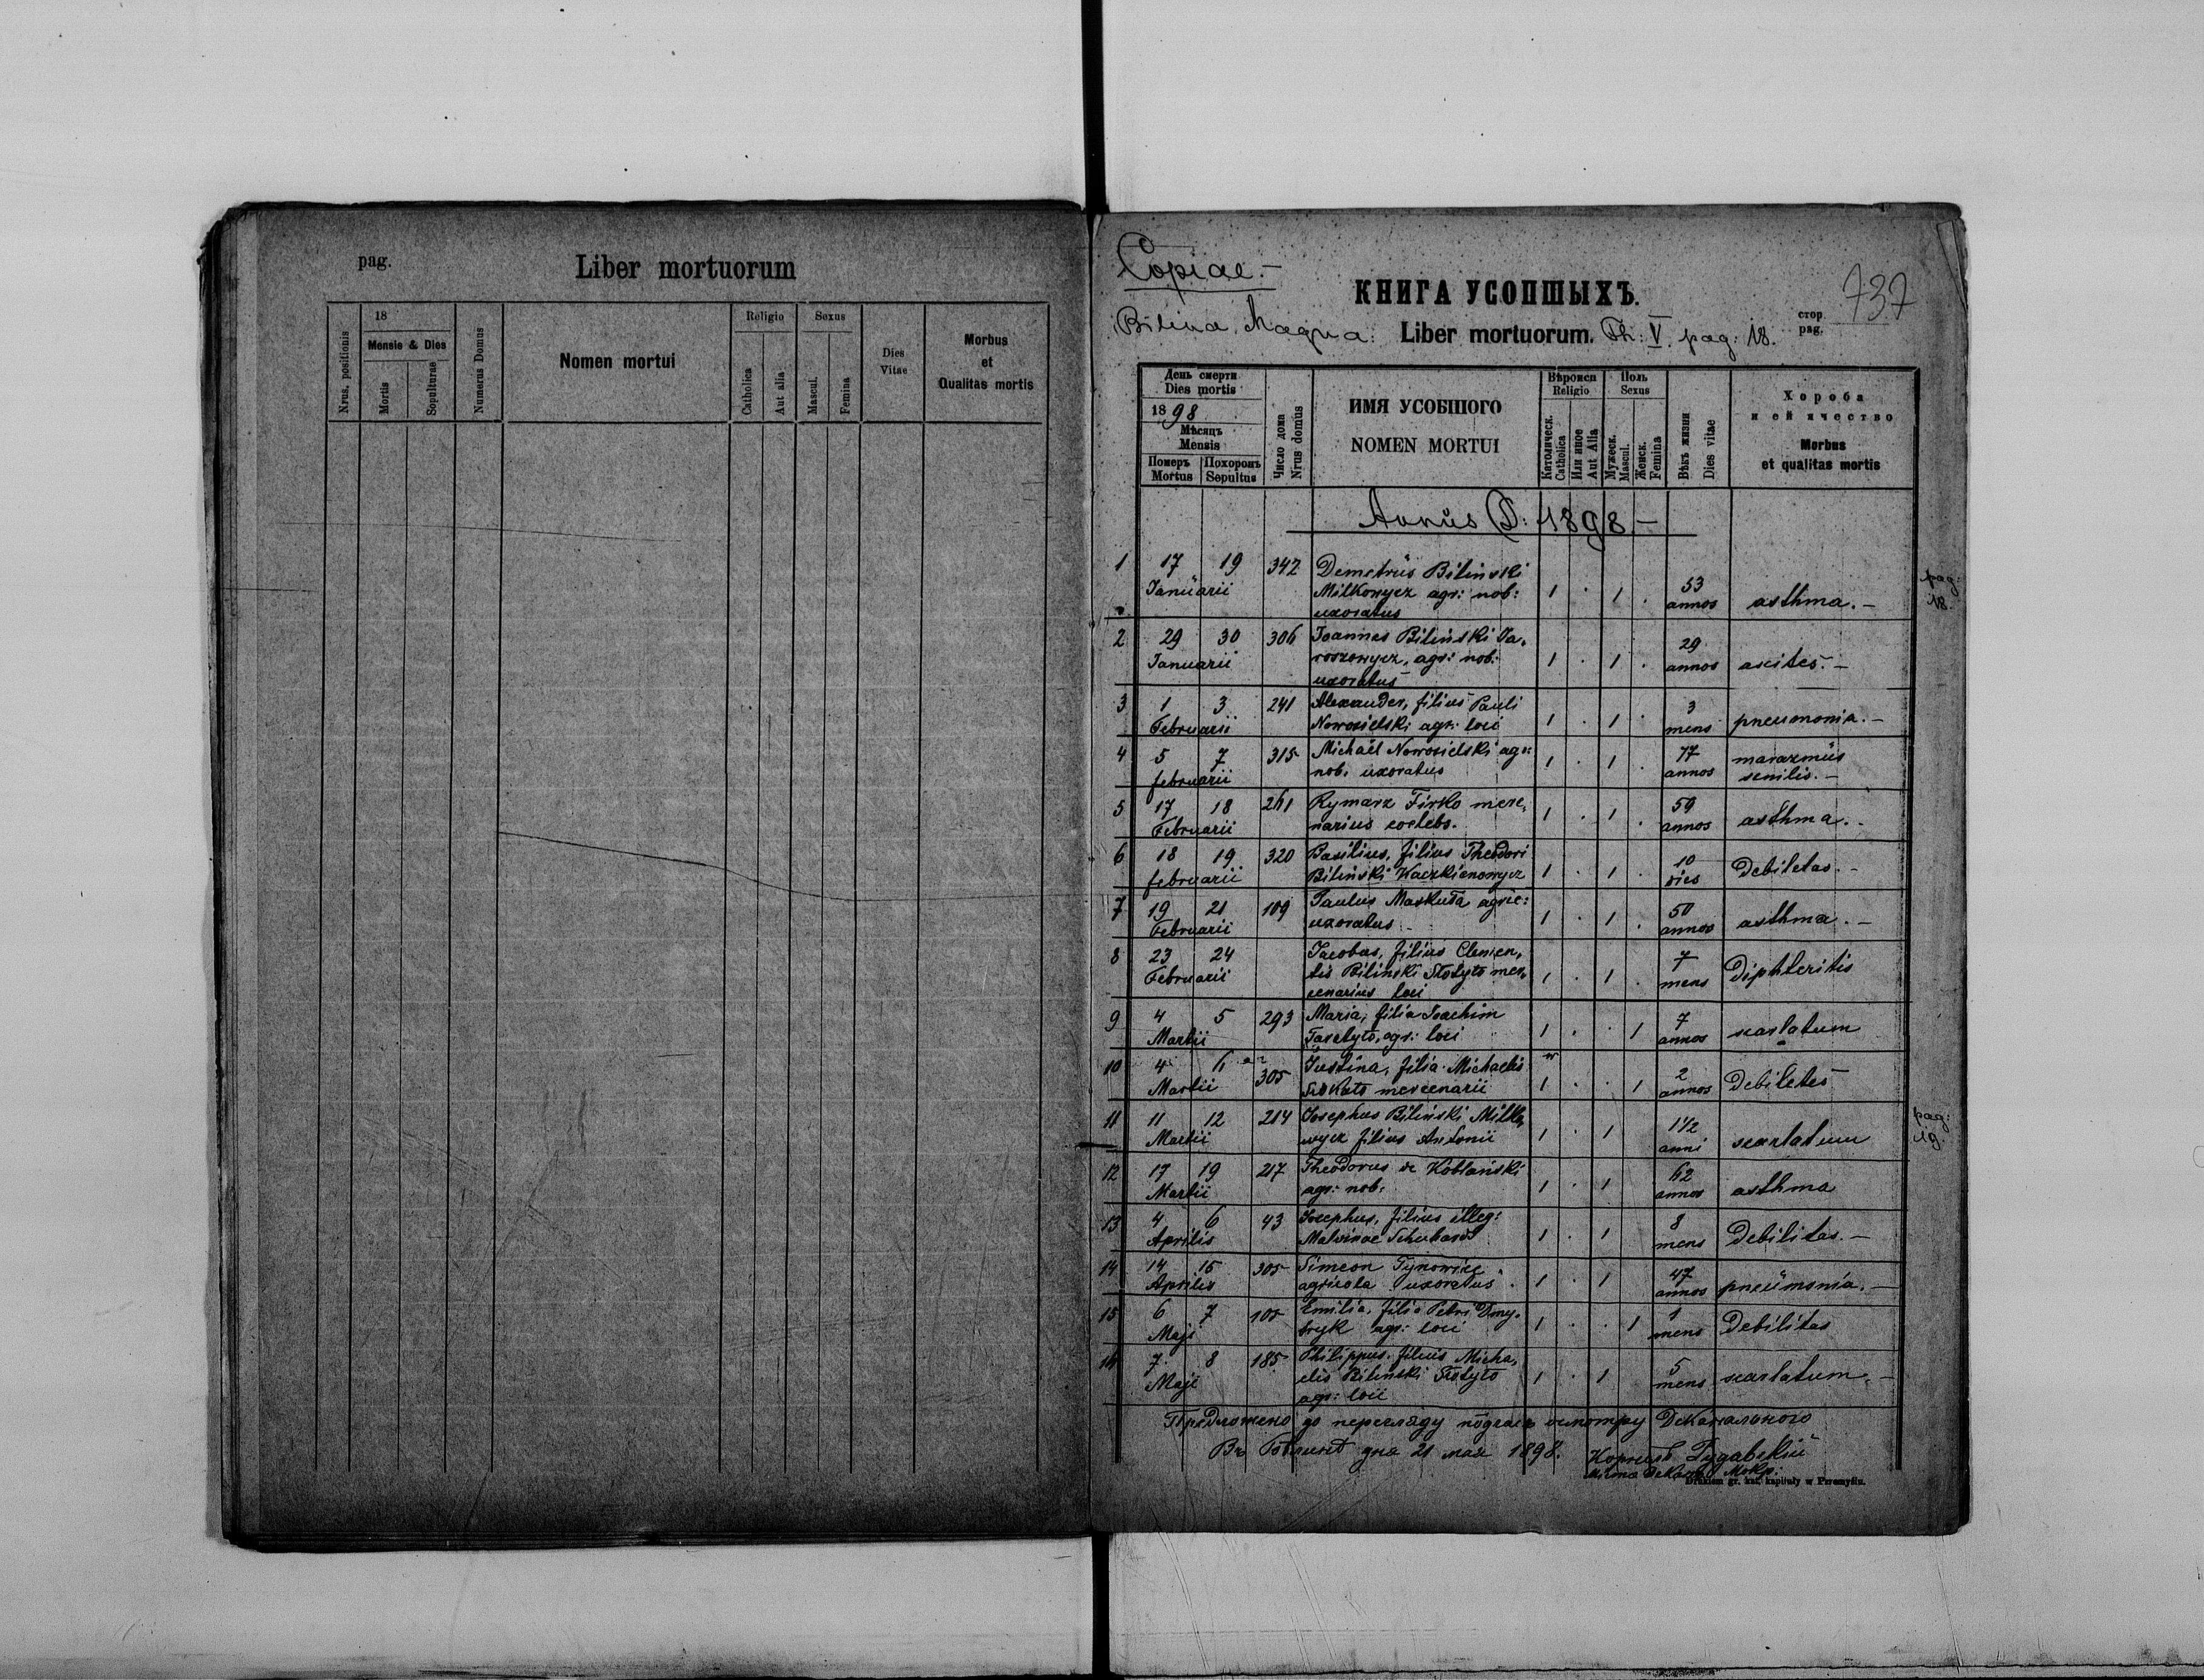 pag.
Liber mortuorum
Nrus. positionis
18
Mensis & Dies
Mortis
Sepulturae
Numerus Domus
Nomen mortui
Religio
Catholica
Aut alia
Sexus
Mascul.
Femina
Dies
Vitae
Morbus
et
Qualitas mortis
Copiae.-
737
КНИГА УСОПШЫХЪ.
Bilina Magna:
Liber mortuorum. Th: V. pag: 18.
стор.
pag.
День смерти
Dies mortis
1898
Мѣсяцъ
Mensis
Померъ
Mortus
Похоронъ
Sepultus
Число дома
Nrus domus
ИМЯ УСОБШОГО
NOMEN MORTUI
Вѣроисп
Religio
Католическ.
Catholica
Или иное
Aut Alia
Поль
Sexus
Мужеск.
Mascul.
Женск.
Femina
Вѣкъ жизни
Dies vitae
Хороба
и ей ячество
Morbus
et qualitas mortis
Annus D: 1898.-
1 17 19 342 Demetrius Bilinski
Januarii Milkowycz agr: nob: 1 . 1 . 53 annos asthma.-
uxoratus
pag: 18.
2 29 30 306 Joannes Biliński Ja,
Januarii roszowycz, agr: nob: 1 . 1 . 29 annos ascites.-
uxoratus
3 1 3 241 Alexander, filius Pauli
Februarii Nowosielski agr: loci 1 . 1 . 3 mens pneumonia.-
4 5 7 315 Michaël Nowosielski agr:
februarii nob. uxoratus 1 . 1 . 77 annos marazmus
senilis.-
5 17 18 261 Rymarz Firko merce,
Februarii narius coelebs. 1 . 1 . 59 annos asthma.-
6 18 19 320 Basilius, filius Theodori
februarii Biliński Kaczkianowycz 1 . 1 . 10 dies Debiletas.-
7 19 21 109 Paulus Maskuta agric:
Februarii uxoratus 1 . 1 . 50 annos asthma.-
8 23 24 Jacobus, filius Clemen,
Februarii tis Bilinski mer, 1 . 1 . 7 mens Diphteritis
cenarius loci
9 4 5 293 Maria, filia Joachim
Martii agr: loci 1 . . 1 7 annos scarlatum
10 4 6 305 Justina, filia Michaelis
Martii mercenarii 1 . . 1 2 annos Debiletes
11 11 12 214 Josephus Biliński Milko,
Martii wycz filius Antonii 1 . 1 1 1/2 anni scarlatum
pag: 19.
12 17 19 217 Theodorus de Kobłański
Martii agr: nob: 1 . 1 62 annos asthma
13 4 6 43 Josephus, filius illeg:
Aprilis Malvinae 1 . 1 8 mens Debilitas.-
14 14 15 305 Simeon
Aprilis agricola uxoratus. 1 . 1 47 annos pneumonia.-
15 6 7 105 Emilia, filia Petri Dmy,
Maji tryk agr: loci 1 . . 1 1 mens Debilitas
16 7 8 185 Philippus, filius Micha,
Maji elis Bilinski 1 . 1 5 mens scarlatum.-
agr: loci
Предложено до перегляду осмотру Деканального
Въ дна 21 мая 1898.
Drukiem gr. kat. kapituły w Przemyślu.